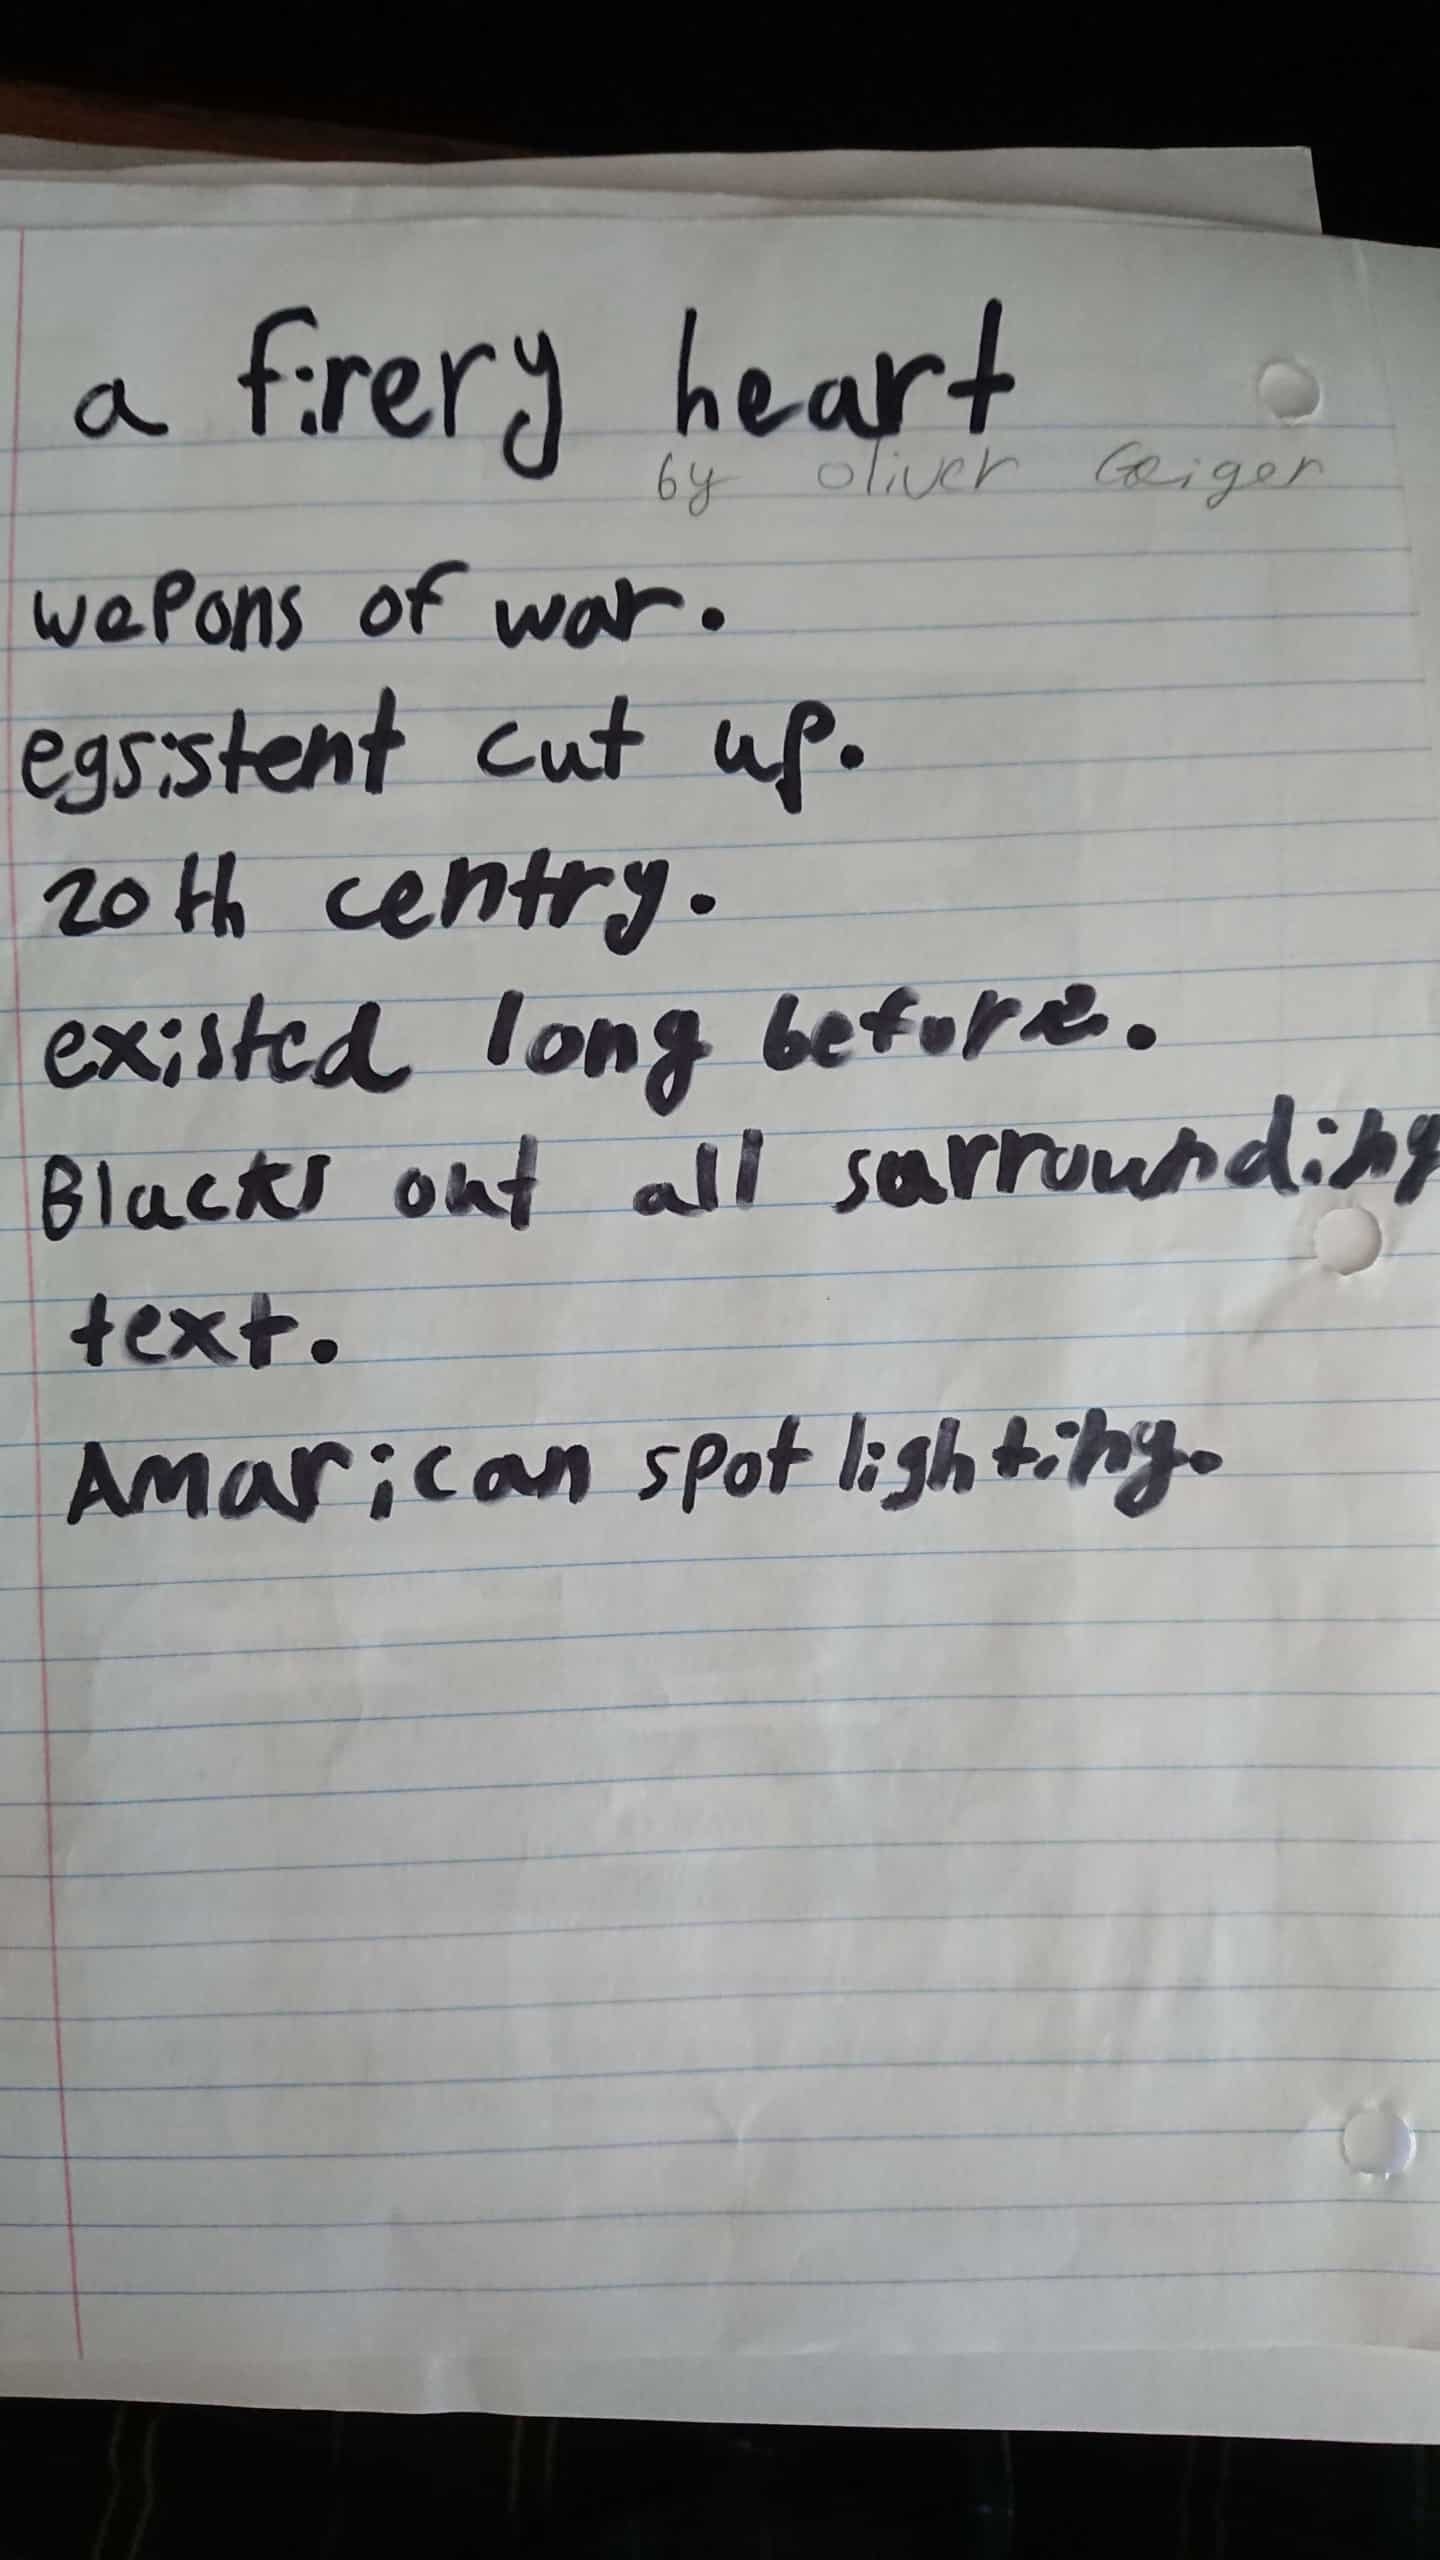 a firery heart
by oliver Geiger
wepons of war.
egsistent cut up.
20th centry.
existed long before.
Blacks out all surrounding
text.
Amarican spot lighting.